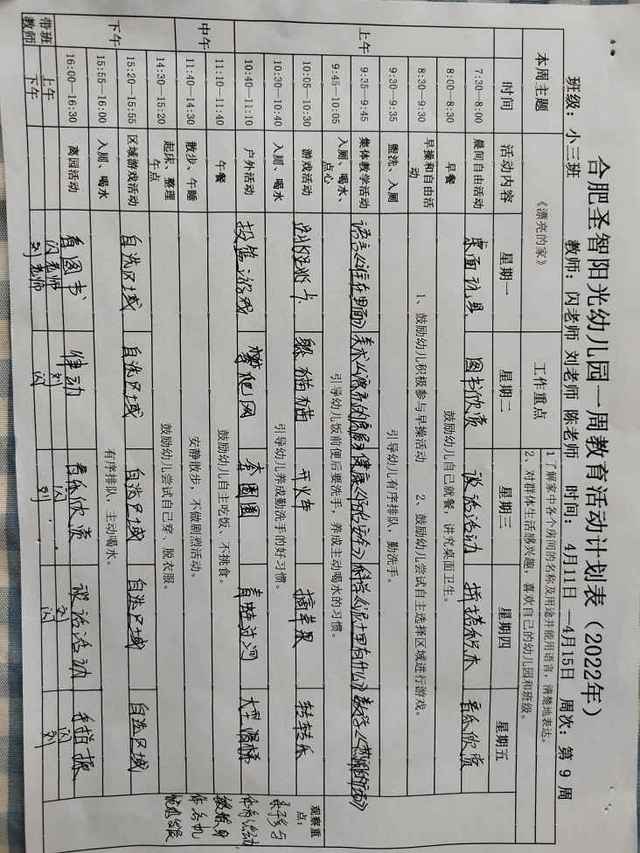 合肥圣智阳光幼儿园一周教育活动计划表（2022年）
班级：小三班 教师：闪老师 刘老师 陈老师 时间：4月11日—4月15日 周次：第 9 周
本周主题 《漂亮的家》 工作重点 1了解家中各个房间的名称及用途并能用语言，清楚地表达。
2、对群体生活感兴趣，喜欢自己的幼儿园和班级。
时间 活动内容 星期一 星期二 星期三 星期四 星期五
上午
7:30—8:00 晨间自由活动 桌面玩具 图书欣赏 谈话活动 拼搭积木 音乐欣赏
8:00—8:30 早餐 鼓励幼儿自己就餐，讲究桌面卫生。
8:30—9:30 早操和自由活动 1、鼓励幼儿积极参与早操活动 2、鼓励幼儿尝试自主选择区域进行游戏。
9:30—9:35 盥洗、入厕 引导幼儿有序排队，勤洗手。
9:35—9:45 集体教学活动 语言《谁在里面》 美术 健康 科学 数学
9:45—10:05 入厕、喝水、点心 引导幼儿饭前便后要洗手，养成主动喝水的习惯。
10:05—10:30 游戏活动 躲猫猫 开火车 摘苹果 转转乐 观察重点：
10:30—10:40 入厕、喝水 引导幼儿养成勤洗手的好习惯。
10:40—11:10 户外活动 投篮游戏 攀爬网 大型滑梯
中午
11:10—11:40 午餐 鼓励幼儿自主吃饭、不挑食。
11:40—14:30 散步、午睡 安静散步，不做剧烈活动。
下午
14:30—15:20 起床、整理午点 鼓励幼儿尝试自己穿、脱衣服。
15:20—15:55 区域游戏活动 自选区域 自选区域 自选区域 自选区域 自选区域
15:55—16:00 入厕、喝水 有序排队，主动喝水。
16:00—16:30 离园活动 看图书 律动 音乐欣赏 谈话活动
带班教师 上午 闪老师 刘 闪 刘 闪
下午 刘老师 闪 刘 闪 刘